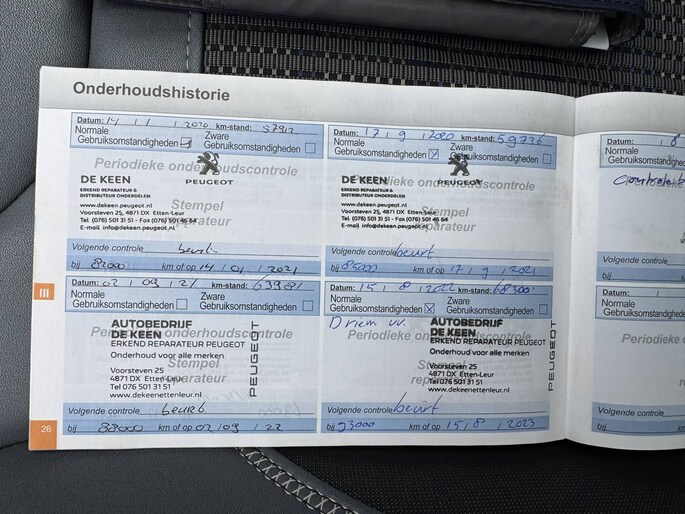 Onderhoudshistorie
Datum: 14 / 1 / 2020 km-stand: 57912
Normale Gebruiksomstandigheden
Zware Gebruiksomstandigheden
Periodieke onderhoudscontrole
PEUGEOT
DE KEEN
ERKEND REPARATEUR &
DISTRIBUTEUR ONDERDELEN
www.dekeen.peugeot.nl
Voorsteven 25, 4871 DX Etten-Leur
Tel (076) 501 31 51 - Fax (076) 501 46 64
E-mail info@dekeen.peugeot.nl
Stempel
reparateur
Volgende controle beurt
bij 82000 km of op 14 / 01 / 2021
Datum: 17 / 9 / 2020 km-stand: 59736
Normale Gebruiksomstandigheden
Zware Gebruiksomstandigheden
Periodieke onderhoudscontrole
PEUGEOT
DE KEEN
ERKEND REPARATEUR &
DISTRIBUTEUR ONDERDELEN
www.dekeen.peugeot.nl
Voorsteven 25, 4871 DX Etten-Leur
Tel (076) 501 31 51 - Fax (076) 501 46 64
E-mail info@dekeen.peugeot.nl
Stempel
reparateur
Volgende controle beurt
bij 85000 km of op 17 / 9 / 2021
III
Datum: 02 / 09 / 21 km-stand: 63981
Normale Gebruiksomstandigheden
Zware Gebruiksomstandigheden
Periodieke onderhoudscontrole
AUTOBEDRIJF
DE KEEN
ERKEND REPARATEUR PEUGEOT
Onderhoud voor alle merken
Voorsteven 25
4871 DX Etten-Leur
Tel 076 501 31 51
www.dekeenettenleur.nl
PEUGEOT
Stempel
reparateur
Volgende controle beurt
bij 88000 km of op 02 / 09 / 22
Datum: 15 / 8 / 2022 km-stand: 68300
Normale Gebruiksomstandigheden
Zware Gebruiksomstandigheden
Periodieke onderhoudscontrole
AUTOBEDRIJF
DE KEEN
ERKEND REPARATEUR PEUGEOT
Onderhoud voor alle merken
Voorsteven 25
4871 DX Etten-Leur
Tel 076 501 31 51
www.dekeenettenleur.nl
PEUGEOT
Stempel
Volgende controle beurt
bij 93000 km of op 15 / 8 / 2023
26
Datum: 8
Normale
Gebruiksomsta
Volgende co
bij
Datum:
Normale
Gebruiksomsta
Volgende co
bij